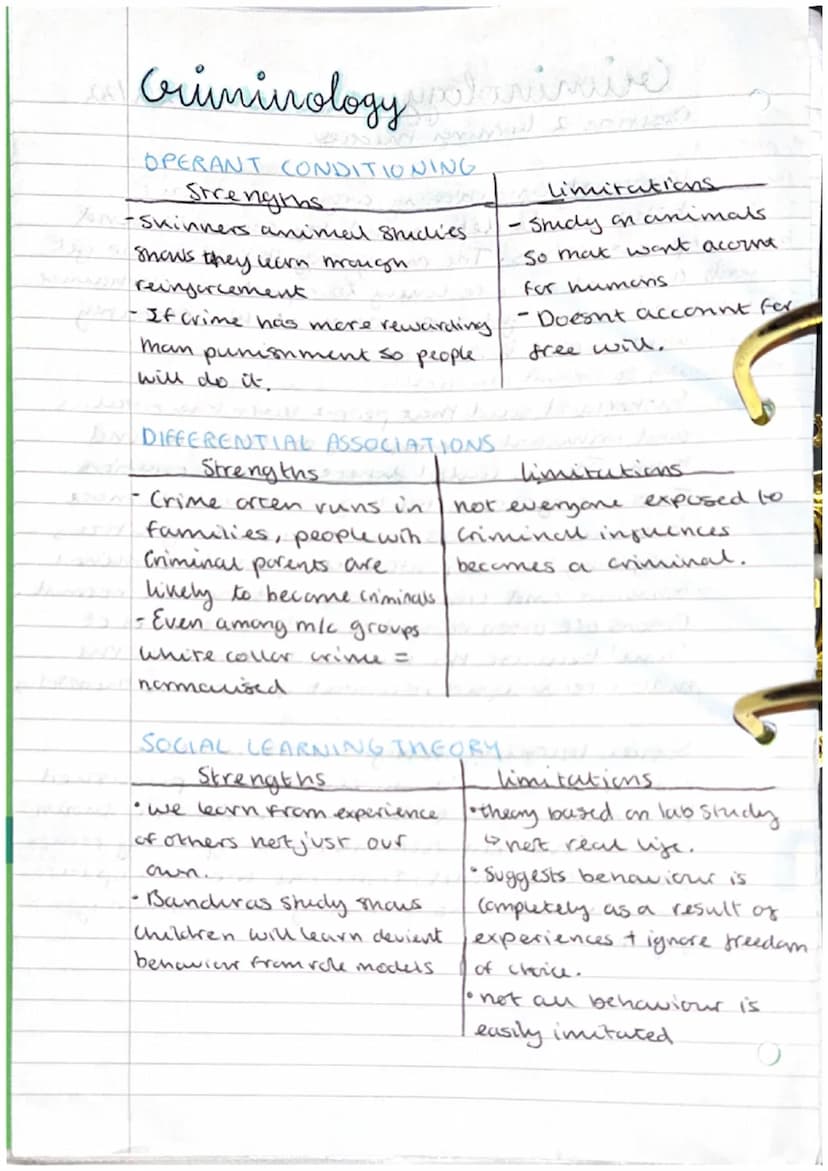 Criminology
OPERANT CONDITIONING
Strengths
- Skinners animal studies
shows they learn through
reinforcement
- If crime has more rewarding
than punishment so people
will do it.
Limitations
- Study on animals
so that wont account
for humans
- Doesnt account for
free will.
DIFFERENTIAL ASSOCIATIONS
Strengths
- Crime often runs in
families, people with
criminal parents are
likely to become criminals
- Even among m/c groups
white collar crime =
normalised
limitations
not everyone exposed to
criminal influences
becomes a criminal.
SOCIAL LEARNING THEORY
Strengths
• we learn from experience
of others not just our
own.
• Banduras study shows
children will learn devient
behaviour from role models
limitations
• theory based on lab study
↳ not real life.
• Suggests behaviour is
completely as a result of
experiences + ignore freedom
of choice.
• not all behaviour is
easily imitated